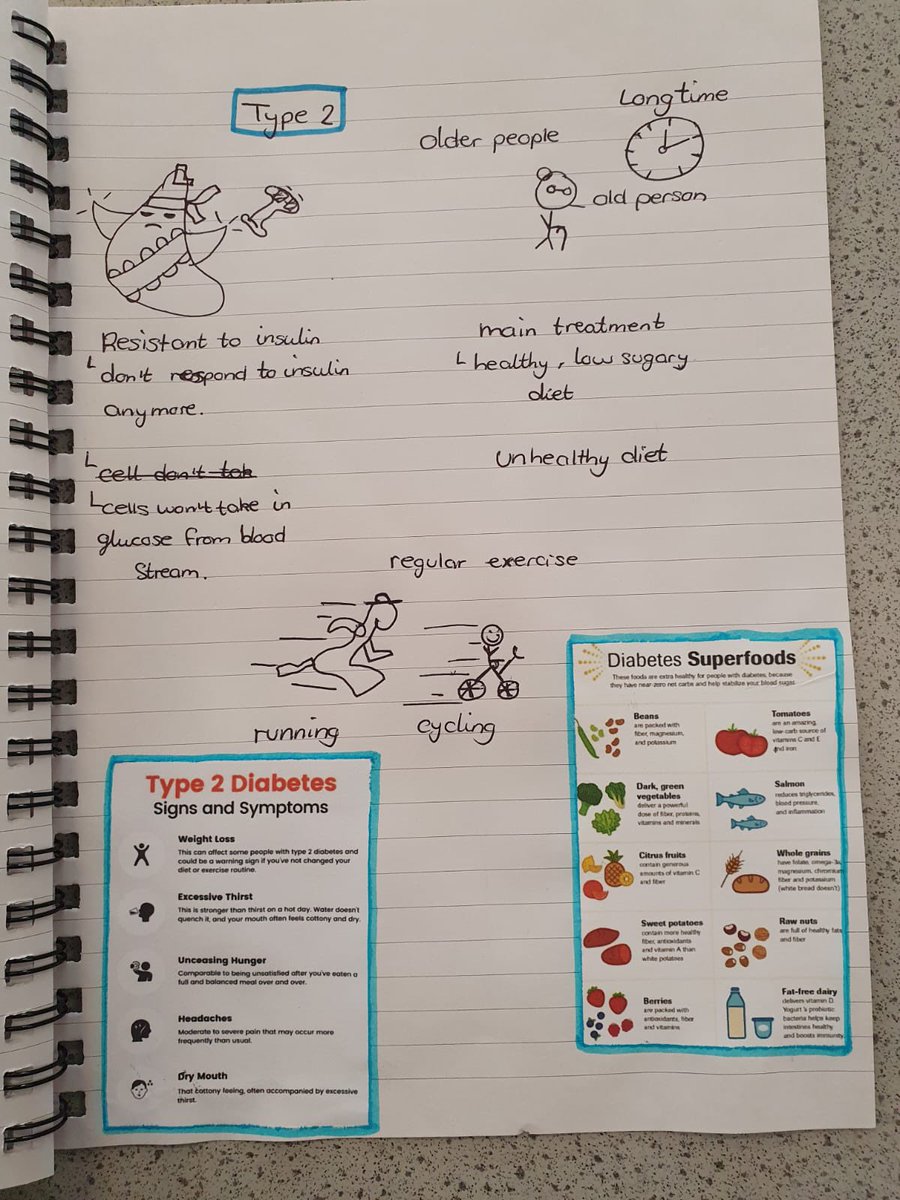 Type 2
Longtime
older people
old person
Resistant to insulin
└ don't respond to insulin
anymore.
└ cell don't tak
└ cells won't take in
glucose from blood
stream.
main treatment
└ healthy, low sugary
diet
unhealthy diet
regular exercise
running
cycling
Type 2 Diabetes
Signs and Symptoms
Weight Loss
This can affect some people with type 2 diabetes and
could be a warning sign if you've not changed your
diet or exercise routine.
Excessive Thirst
This is stronger than thirst on a hot day. Water doesn't
quench it, and your mouth often feels cottony and dry.
Unceasing Hunger
Comparable to being unsatisfied after you've eaten a
full and balanced meal over and over.
Headaches
Moderate to severe pain that may occur more
frequently than usual.
Dry Mouth
That cottony feeling, often accompanied by excessive
thirst.
Diabetes Superfoods
These foods are extra healthy for people with diabetes, because
they have near-zero net carbs and help stabilize your blood sugar.
Beans
are packed with
fiber, magnesium,
and potassium
Tomatoes
are an amazing,
low-carb source of
vitamins C and E
and iron
Dark, green
vegetables
deliver a powerful
dose of fiber, proteins,
vitamins and minerals
Salmon
reduces triglycerides,
blood pressure,
and inflammation
Citrus fruits
contain generous
amounts of vitamin C
and fiber
Whole grains
have folate, omega-3s,
magnesium, chromium,
fiber and potassium
(white bread doesn't)
Sweet potatoes
contain more healthy
fiber, antioxidants
and vitamin A than
white potatoes
Raw nuts
are full of healthy fats
and fiber
Berries
are packed with
antioxidants, fiber
and vitamins
Fat-free dairy
delivers vitamin D.
Yogurt's probiotic
bacteria helps keep
intestines healthy
and boosts immunity